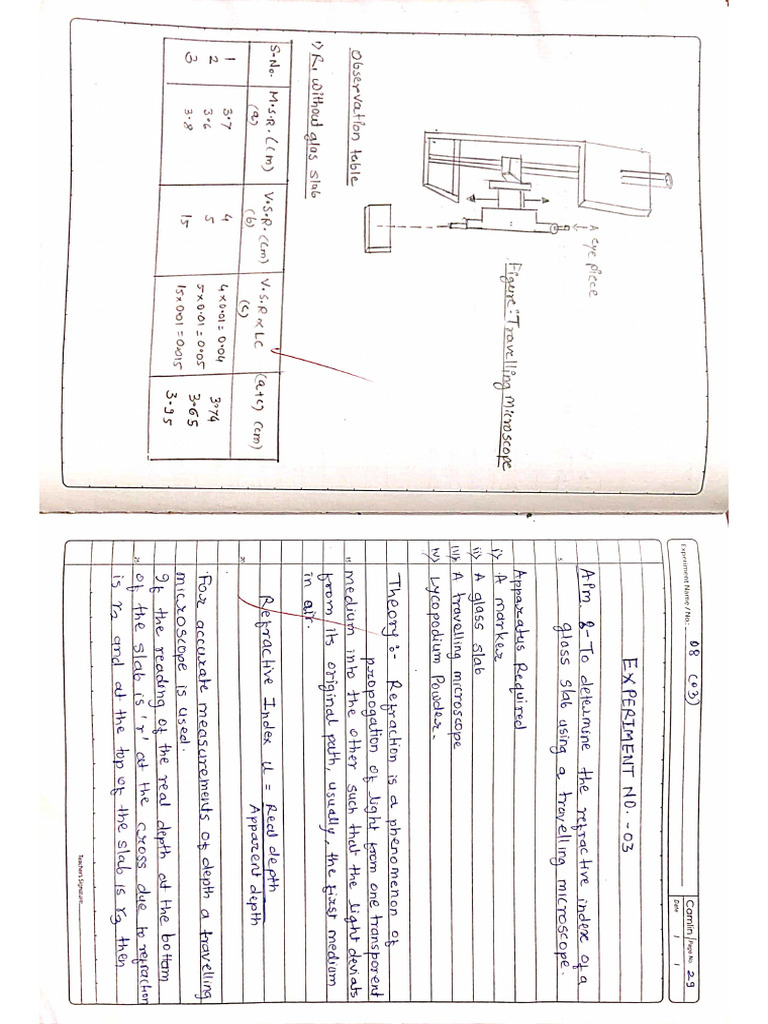 A eye piece
Figure:-Travelling Microscope
Observation table
1) R1 without glas slab
S.No. M.S.R. (cm) (a) V.S.R. (cm) (b) V.S.R × LC (c) (a+c) (cm)
1 3.7 4 4×0.01=0.04 3.74
2 3.6 5 5×0.01=0.05 3.65
3 3.8 15 15×0.01=0.015 3.95
Experiment Name / No.: 08 (03)
Camlin Page No. 29
Date / /
EXPERIMENT NO.-03
AIM :- To determine the refractive index of a
glass slab using a travelling microscope.
Apparatus Required
i) A marker
ii) A glass slab
iii) A travelling microscope
iv) Lycopodium Powder.
Theory:- Refraction is a phenomenon of
propogation of light from one transparent
medium into the other such that the light deviats
from its original path, usually, the first medium
in air.
Refractive Index u = Real depth
Apparent depth
For accurate measurements of depth a travelling
microscope is used.
If the reading of the real depth at the bottom
of the slab is 'r' at the cross due to refraction
is r2 and at the top of the slab is r3 then
Teacher's Signature